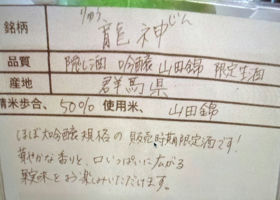 銘柄 龍神 りゅう じん
品質 隠し酒 吟醸 山田錦 限定生酒
産地 群馬県
精米歩合、50% 使用米、山田錦
ほぼ大吟醸規格の販売時期限定酒です!
華やかな香りと、口いっぱいに広がる
果実味をお楽しみいただけます。